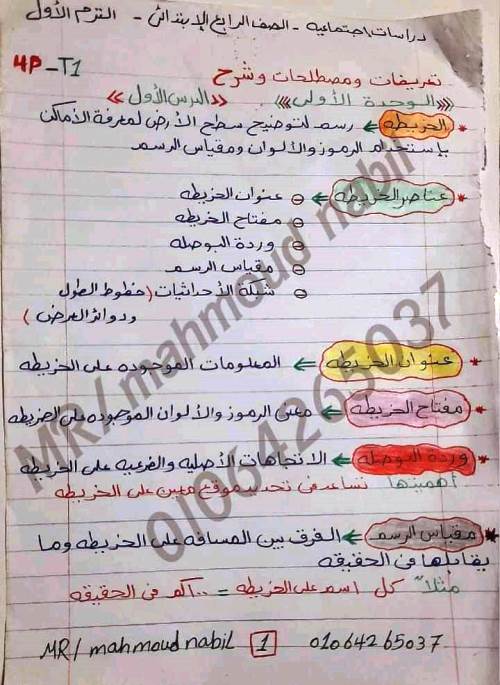 دراسات اجتماعيه - الصف الرابع الإبتدائى - الترم الأول
4P_T1
تعريفات ومصطلحات وشرح
《《《الوحدة الأولى》》》 《《الدرس الأول》》
* الخريطه ← رسم لتوضيح سطح الأرض لمعرفة الأماكن
بإستخدام الرموز والألوان ومقياس الرسم
* عناصر الخريطه ← ⊖ عنوان الخريطه
⊖ مفتاح الخريطه
⊖ وردة البوصله
⊖ مقياس الرسم
⊖ شبكة الأحداثيات (خطوط الطول
ودوائر العرض)
* عنوان الخريطه ← المعلومات الموجوده على الخريطه
* مفتاح الخريطه ← معنى الرموز والألوان الموجوده على الخريطه
* وردة البوصله ← الاتجاهات الأصليه والفرعيه على الخريطه
أهميتها تساعد فى تحديد موقع معين على الخريطه
* مقياس الرسم ← الفرق بين المسافه على الخريطه وما
يقابلها فى الحقيقه
مثلاً كل ١سم على الخريطه = ١٠٠كم فى الحقيقه
MR/mahmoud nabil 1 01064265037
MR/mahmoud nabil
01064265037